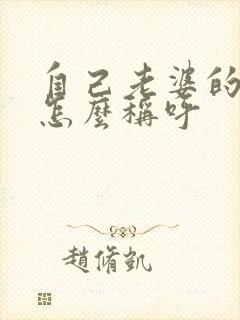 自己老婆的
怎麼稱呼
趙脩凱